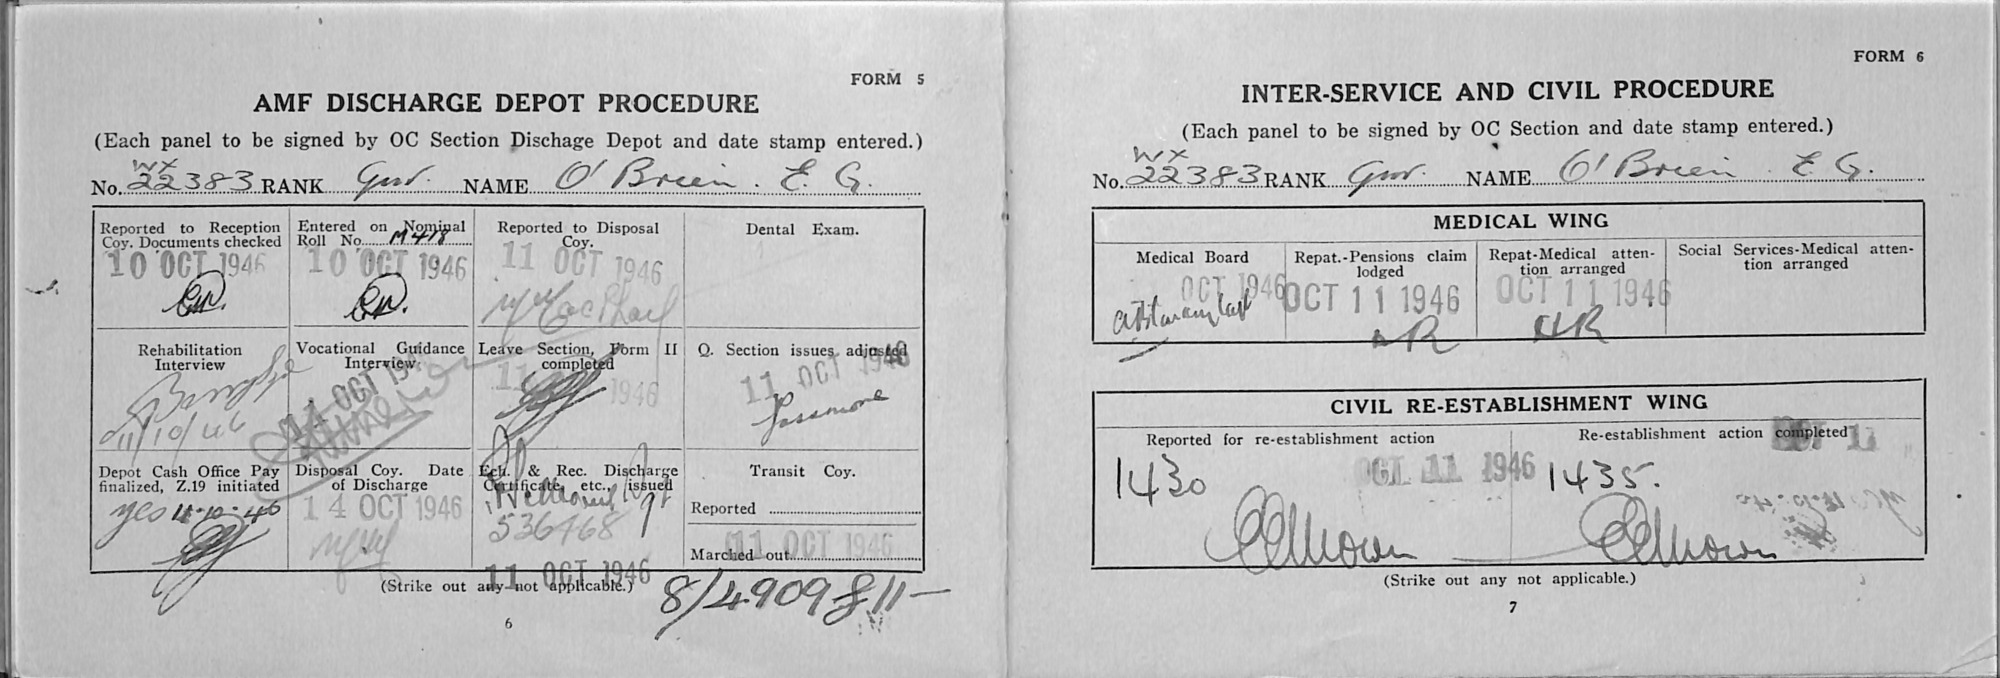 FORM 5
AMF DISCHARGE DEPOT PROCEDURE
(Each panel to be signed by OC Section Dischage Depot and date stamp entered.)
WX
No. 22383 RANK Gnr. NAME O'Brien. E. G.
Reported to Reception
Coy. Documents checked
10 OCT 1946
Entered on Nominal
Roll No. M418
10 OCT 1946
Reported to Disposal
Coy.
11 OCT 1946
Dental Exam.
Rehabilitation
Interview
11/10/46
Vocational Guidance
Interview
14 OCT
Leave Section, Form II
completed
11 1946
Q. Section issues adjusted
11 OCT 1946
Passmore
Depot Cash Office Pay
finalized, Z.19 initiated
yes 11-10-46
Disposal Coy. Date
of Discharge
14 OCT 1946
Ech. & Rec. Discharge
Certificate, etc., issued
536468
11 OCT 1946
Transit Coy.
Reported
Marched out 11 OCT 1946
(Strike out any not applicable.)
8/4909 £11-
6
FORM 6
INTER-SERVICE AND CIVIL PROCEDURE
(Each panel to be signed by OC Section and date stamp entered.)
WX
No. 22383 RANK Gnr. NAME O'Brien E. G.
MEDICAL WING
Medical Board
OCT 1946
Repat.-Pensions claim
lodged
OCT 11 1946
Repat-Medical atten-
tion arranged
OCT 11 1946
Social Services-Medical atten-
tion arranged
CIVIL RE-ESTABLISHMENT WING
Reported for re-establishment action
1430
OCT 11 1946
Re-establishment action completed
OCT 11
1435.
(Strike out any not applicable.)
7